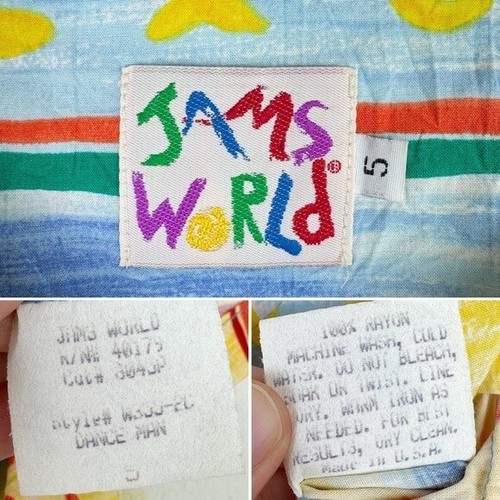 JAMS
WORLD®
5
JAMS WORLD
R/N# 40179
Cut# 3043P
Style#
DANCE MAN
100% RAYON
MACHINE WASH, COLD
WATER. DO NOT BLEACH,
SOAK OR TWIST. LINE
DRY. WARM IRON AS
NEEDED. FOR BEST
RESULTS, DRY CLEAN.
Made in U.S.A.